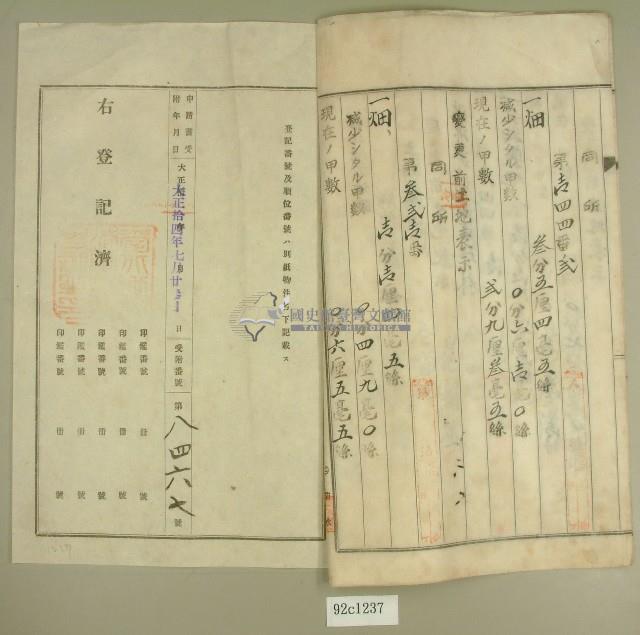 同所
第吉四四番弍
一畑
叁分五厘四毫五絲
減少シタル甲数
〇分六厘吉〇絲
現在ノ甲数
弍分九厘叁毫五絲
変更前土地表示
同所
第叁弍吉番
一畑
吉分吉厘
五絲
減少シタル甲数
〇分四厘九毫〇絲
現在ノ甲数
〇分六厘五毫五絲
登記番號及順位番號ハ別紙物件
下記載ス
申請書受附年月日
大正拾四年七月廿
日
受附番號
第八四六七號
右登記濟
印鑑番號 冊 號
印鑑番號 冊 號
印鑑番號 冊 號
印鑑番號 冊 號
印鑑番號 冊 號
國史館臺灣文獻館
TAIWAN HISTORICA
92c1237